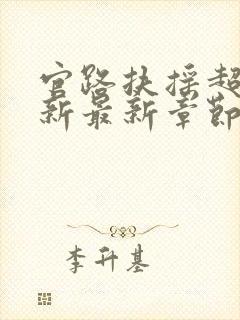 官路扶摇超
新最新章节
李升基